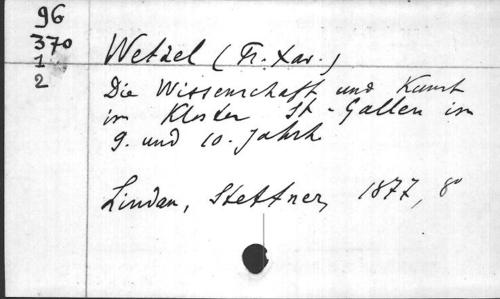 96
370
1
2
Wetzel (Fr. Xav.)
Die Wissenschaft und Kunst
im Kloster St-Gallen im
9. und 10. Jahrh
Lindau, Stettner, 1877, 8°